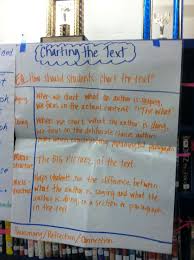 Charting the Text
EQ: How should students chart the text?
Saying When we chart what an author is saying,
we focus on the actual content "The What"
Doing When we chart what the author is doing,
we focus on the deliberate choices authors
make when constructing meaningful paragraphs
Macro-
structure The BIG PICTURE of the text
Micro-
structure Helps students see the difference between
what the author is saying and what the
author is doing in a section or paragraph
in the text
Summary/Reflection/Connection